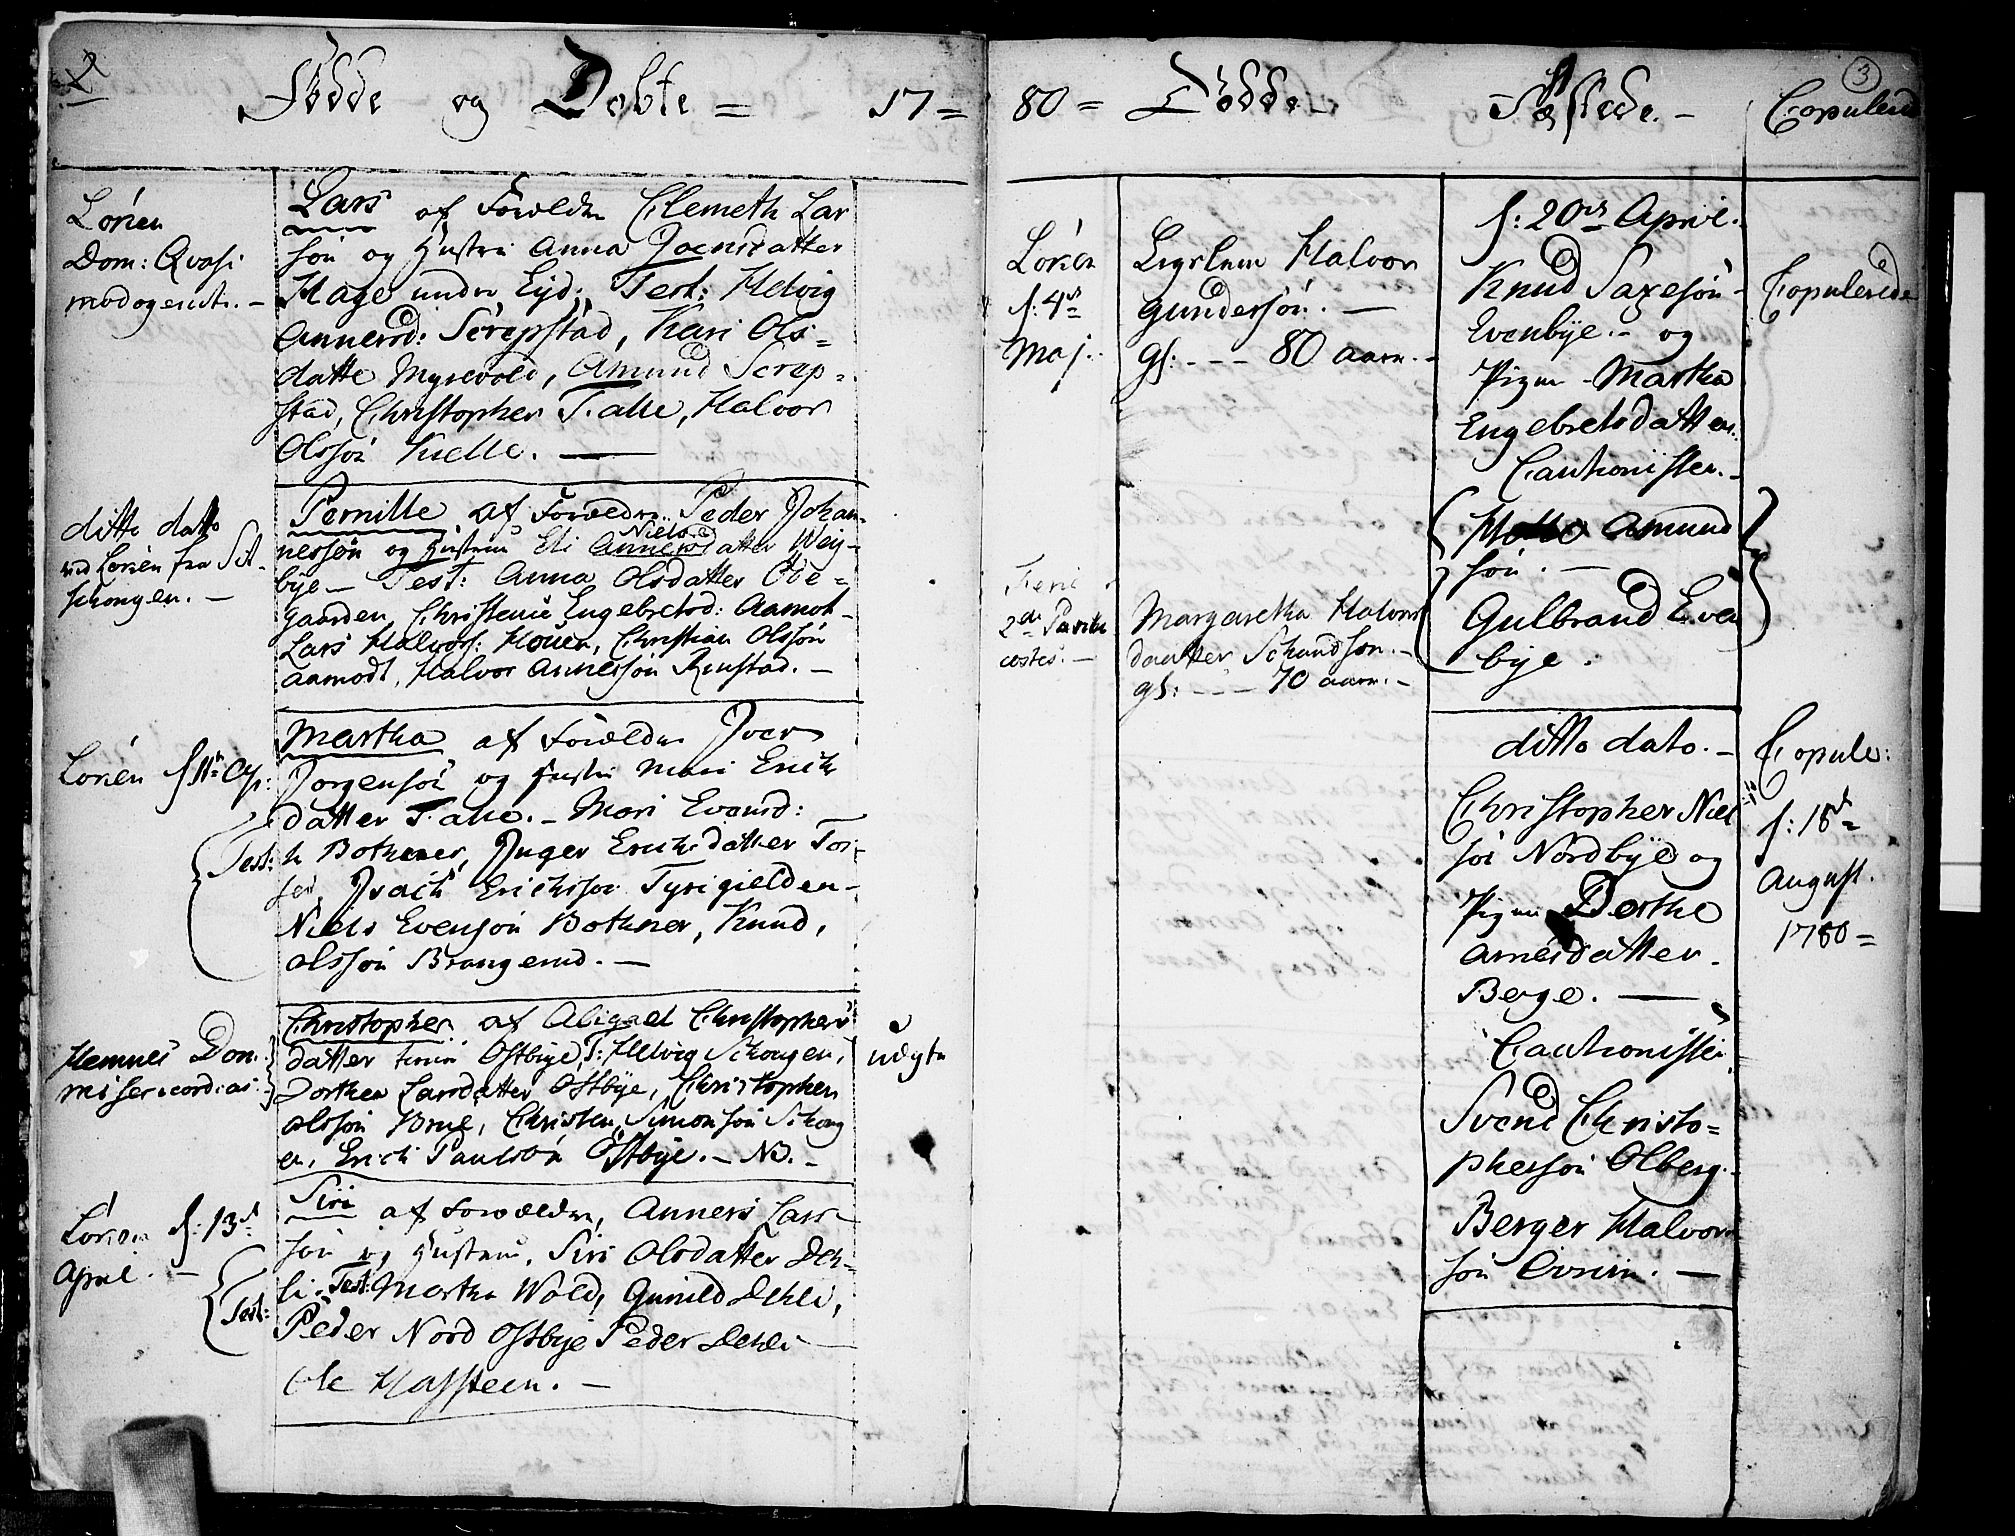 2
Fødde og Døbte = 17 =
Løren
Dom: Qvasi
modogenit. -
Lars af Foreldre Clemeth Lar
søn og Hustru Anna Joensdatter
Hage under Eyd; Test: Helvig
Annersd: Screpstad, Kari Ols=
datte Myrevold, Amund Screp=
stad, Christopher Talle, Halvor
Olssøn Kielle. -
ditto dato
ved Løren fra Sit-
schongen. -
Pernille af Foreldre Peder Johan-
Niels
nessøn og Hustrue Eli Annersdatter Wey-
bye - Test: Anna Olsdatter Ode=
gaarden, Christenie Engebretsd: Aamot-
Lars Halvors: Houen, Christian Olssøn
Aamodt, Halvor Annerssøn Runstad. -
Løren f 11te Ap:
Test:
Martha af Foreldre Iver
Jørgensøn og Hustru Mari Erich
datter Talle. - Mari Evensd:
Bothner, Inger Erichsdatter Tor
Isach Erichssøn Tyrigielden -
Niels Evensøn Bothner, Knud,
Olssøn Brangerud. -
Hemnes Dom.
misericordias
Christopher af Abigael Christophers
datter Østbye, T: Helvig Schongen,
Dorthea Larsdatter Østbye, Christopher
Olssøn Brue, Christen Simonsøn Schong
en, Erich Paulsøn Østbye. - NB. -
uægte
Løren f: 13de
April. -
Test:
Siri af Foreldre, Anners Lars
søn og Hustrue, Siri Olsdatter Deh-
li. Test: Martha Wold, Gunild Dehli,
Peder Nord Østbye Peder Dehli
Ole Hafsteen. -
3
80 = Dødde - Fæstede. - Copulered
Løren
f: 4de
Maj.
Ligslum Halvor
Gundersøn. -
gl: - - - 80 aar. -
Ferie
2de Pente
costes. -
Margaretha Halvors
daatter Schandsen. -
gl: - - - 70 aar. -
f: 20de April.
Knud Saxesøn -
Evenbye. - og
Pigen - Martha
Engebretsdatter.
Cautionister. -
Amund
søn. -
Gulbrand Even
bye.
Copulerede
ditto dato. -
Christopher Niel
søn Nordbye og
Pigen Berthe
Arnesdatter -
Berge. -
Cautionister
Svend Christo=
phersøn Olberg.
Berger Halvor
søn -
Copule:
f: 18de
August.
1780 =